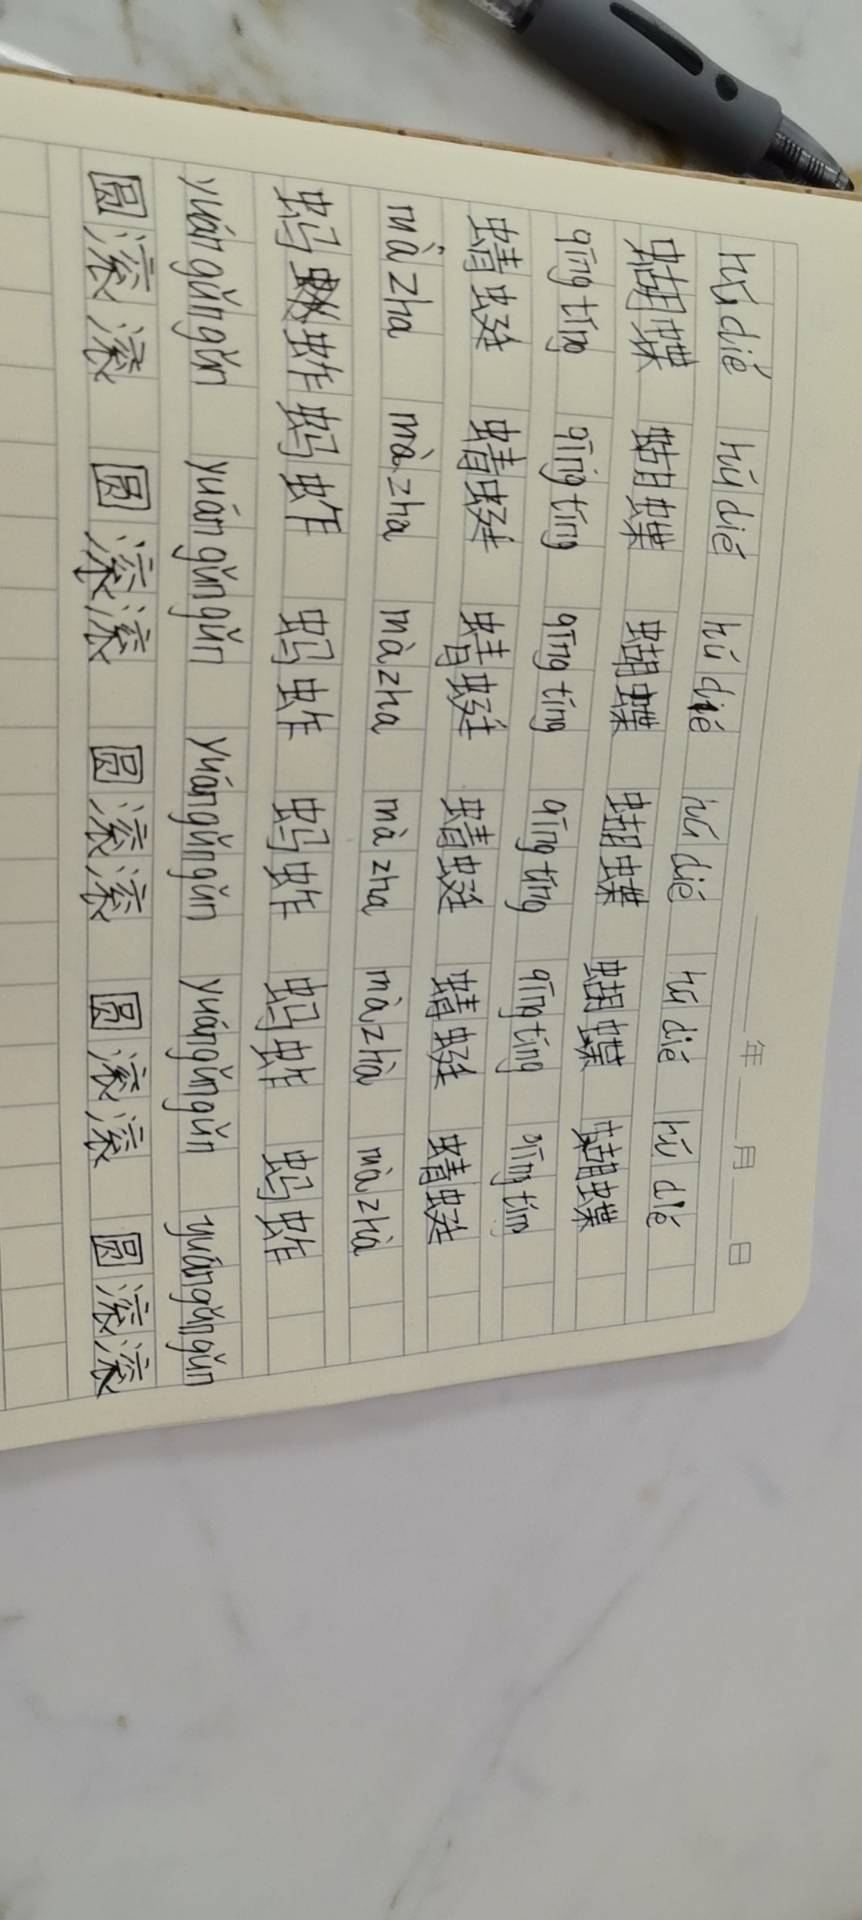 年 月 日
hú dié hú dié hú dié hú dié hú dié hú dié
蝴蝶 蝴蝶 蝴蝶 蝴蝶 蝴蝶 蝴蝶
qīng tíng qīng tíng qīng tíng qīng tíng qīng tíng qīng tíng
蜻蜓 蜻蜓 蜻蜓 蜻蜓 蜻蜓 蜻蜓
mà zha mà zha mà zha mà zha mà zhà mà zhà
蚂蚱 蚂蚱 蚂蚱 蚂蚱 蚂蚱 蚂蚱
yuán gǔn gǔn yuán gǔn gǔn yuán gǔn gǔn yuán gǔn gǔn yuán gǔn gǔn
圆滚滚 圆滚滚 圆滚滚 圆滚滚 圆滚滚